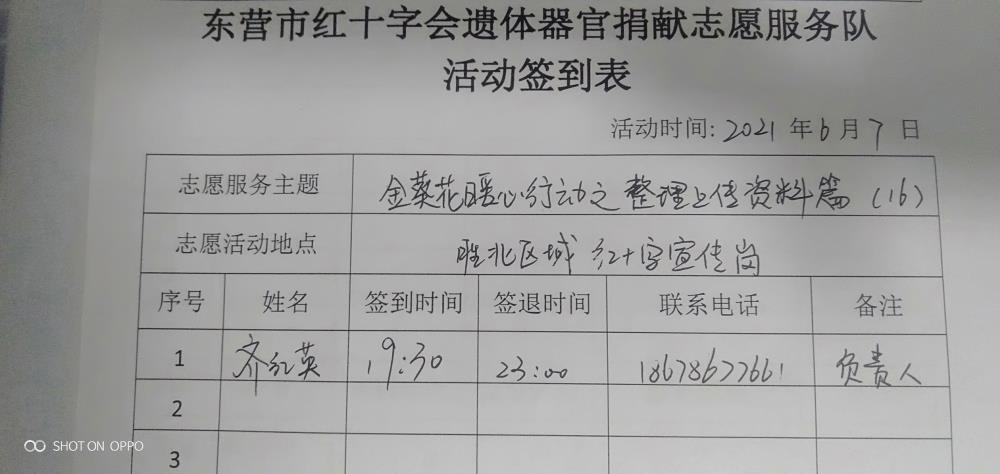 东营市红十字会遗体器官捐献志愿服务队
活动签到表
活动时间: 2021 年 6 月 7 日
志愿服务主题 金葵花暖心行动之整理上传资料篇(16)
志愿活动地点 胜北区域 红十字宣传岗
序号 姓名 签到时间 签退时间 联系电话 备注
1 齐红英 19:30 23:00 18678677661 负责人
2
3
SHOT ON OPPO